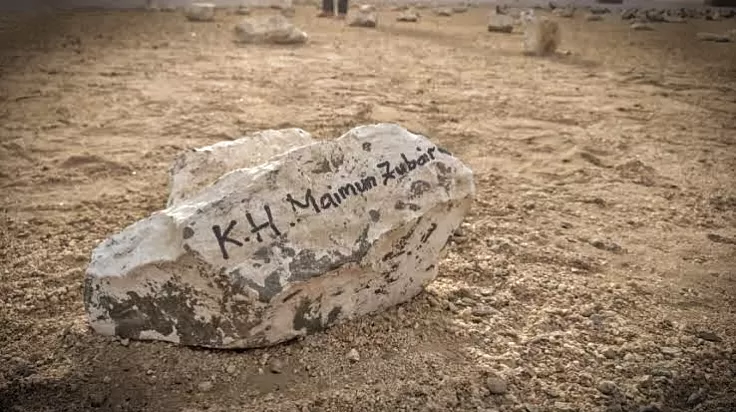 K.H. Maimun Zubair